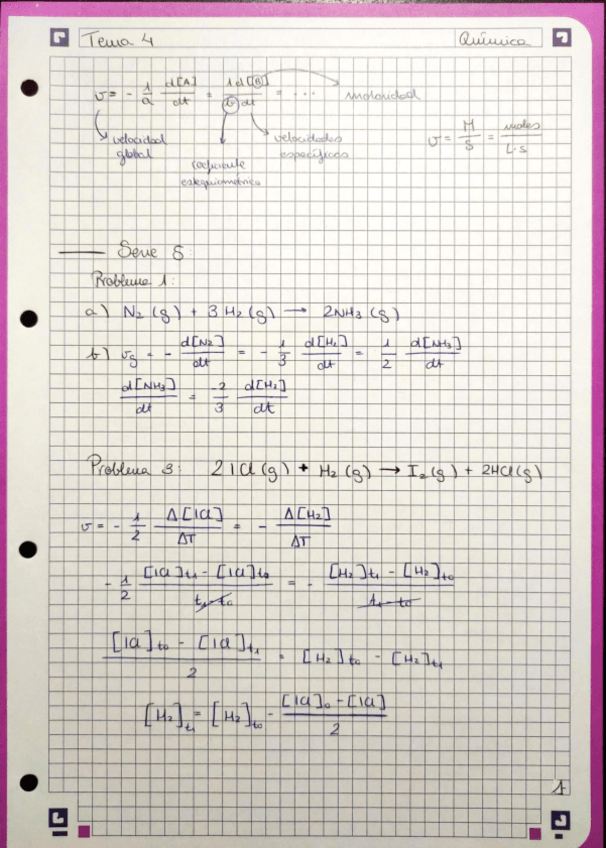 Tema 4 Química
v = - 1/a d[A]/dt = 1/b d[B]/dt = ... molaridad
velocidad global
coeficiente estequiométrico
velocidades específicas
v = M/s = moles/L·s
Serie 5:
Problema 1:
a) N₂ (g) + 3 H₂ (g) → 2NH₃ (g)
b) vg = - d[N₂]/dt = - 1/3 d[H₂]/dt = 1/2 d[NH₃]/dt
d[NH₃]/dt = -2/3 d[H₂]/dt
Problema 3: 2ICl (g) + H₂ (g) → I₂ (g) + 2HCl (g)
v = - 1/2 Δ[ICl]/ΔT = - Δ[H₂]/ΔT
- 1/2 [ICl]t₁ - [ICl]t₀ / t₁ - t₀ = - [H₂]t₁ - [H₂]t₀ / t₁ - t₀
[ICl]t₀ - [ICl]t₁ / 2 = [H₂]t₀ - [H₂]t₁
[H₂]t₁ = [H₂]t₀ - [ICl]₀ - [ICl] / 2
1